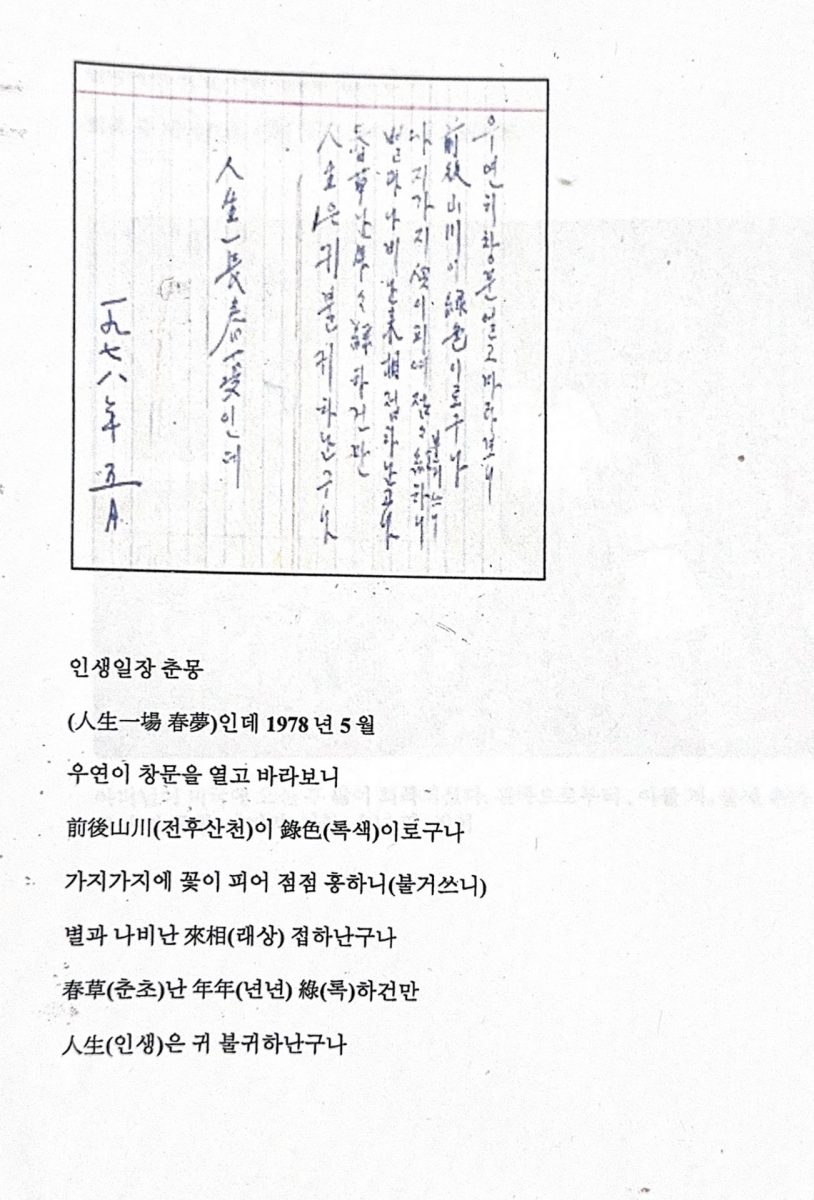 우연히 창문 열고 바라보니
前後山川이 綠色이로구나
가지가지 꽃이 피여 점々
벌과 나비난 來相접하난고나
春草난 年々 하건만
人生은 귀불귀하난구나
人生一長春夢인데
一九七八年 五月
인생일장 춘몽
(人生一場 春夢)인데 1978 년 5 월
우연이 창문을 열고 바라보니
前後山川(전후산천)이 錄色(록색)이로구나
가지가지에 꽃이 피어 점점 홍하니(불거쓰니)
별과 나비난 來相(래상) 접하난구나
春草(춘초)난 年年(년년) 綠(록)하건만
人生(인생)은 귀 불귀하난구나